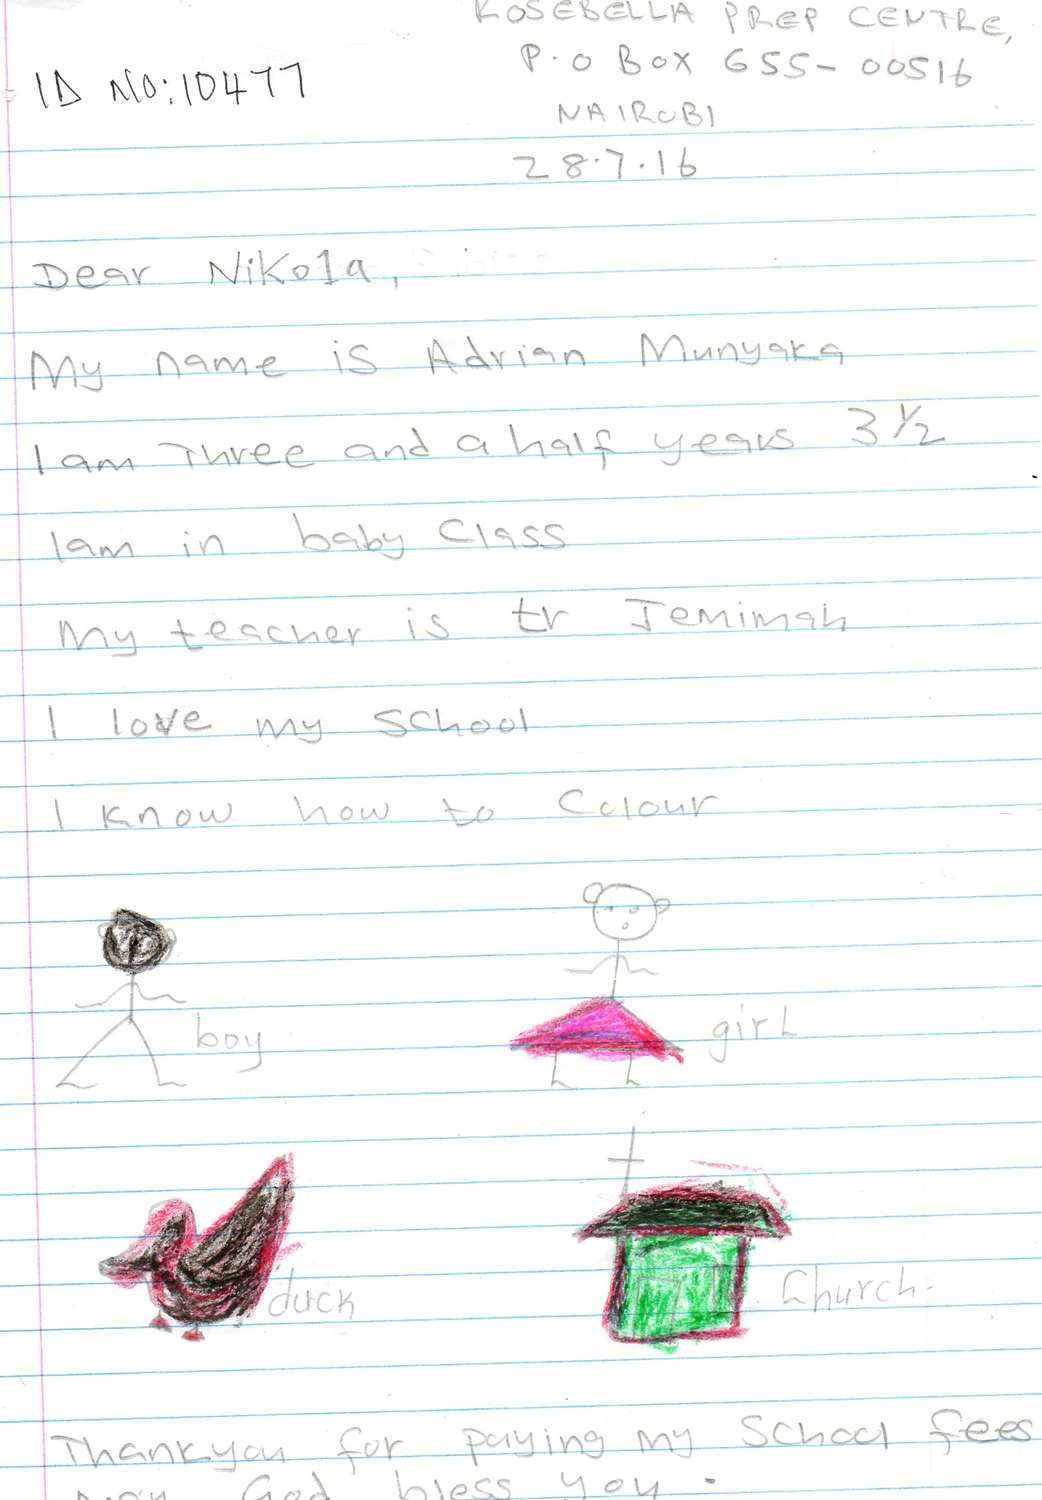 ROSEBELLA PREP CENTRE,
P.O BOX 655-00516
ID NO:10477
NAIROBI
28.7.16
Dear Nikola,
My name is Adrian Munyaka
I am Three and a half years 3 ½
Iam in baby Class
My teacher is tr Jemimah
I love my School
I know how to Colour
boy
girl
duck
Church.
Thankyou for paying my School fees
may God bless you.